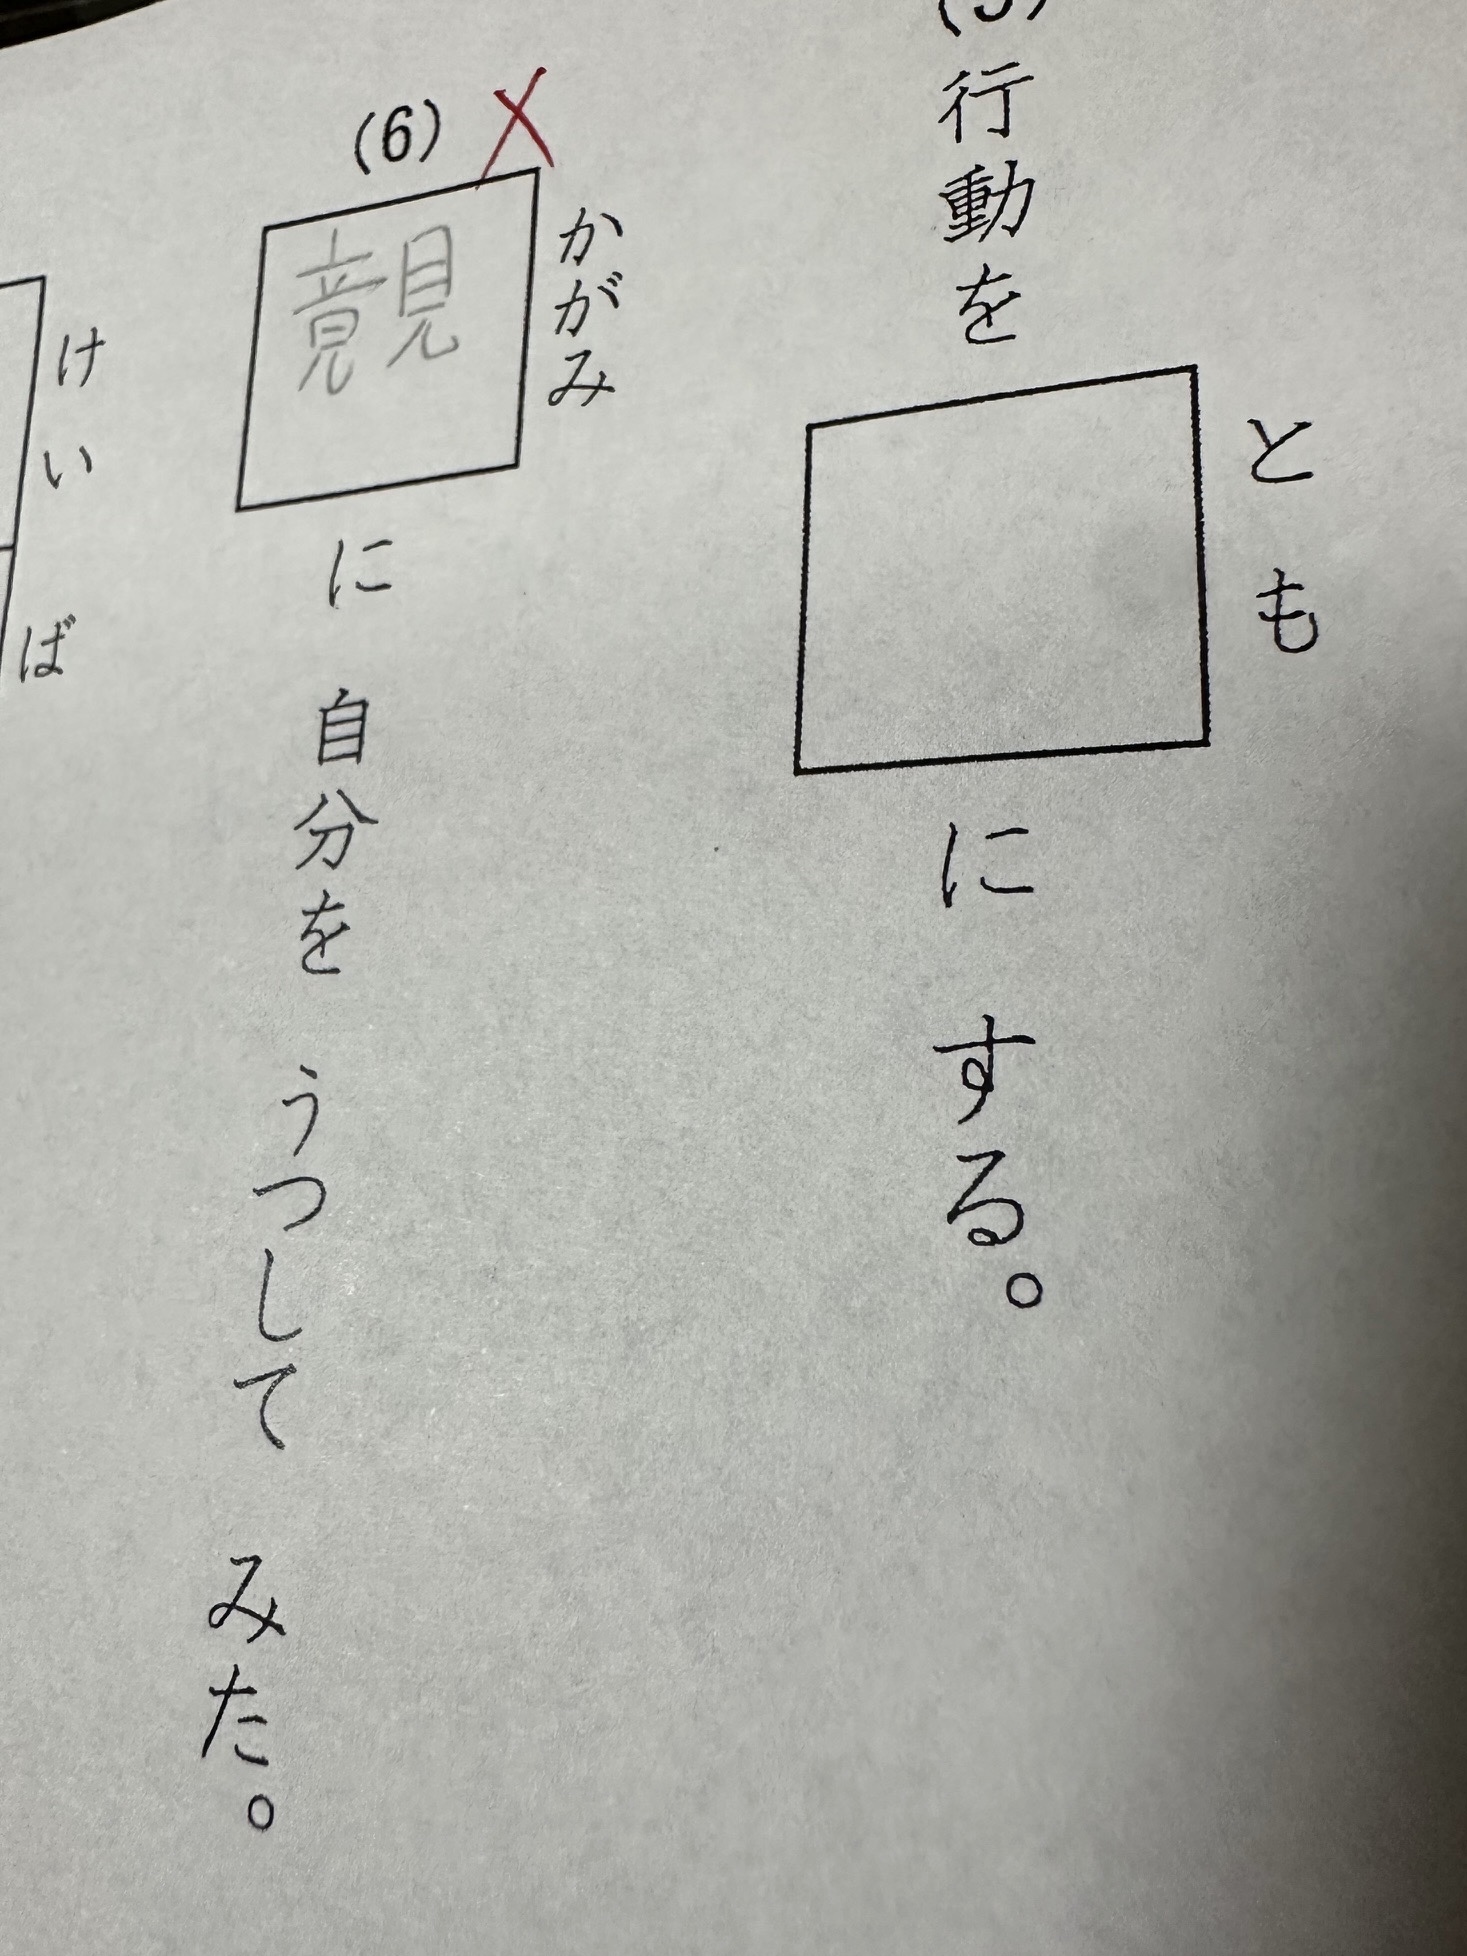 行動を
とも
にする。
(6)
かがみ
に自分をうつしてみた。
けいば